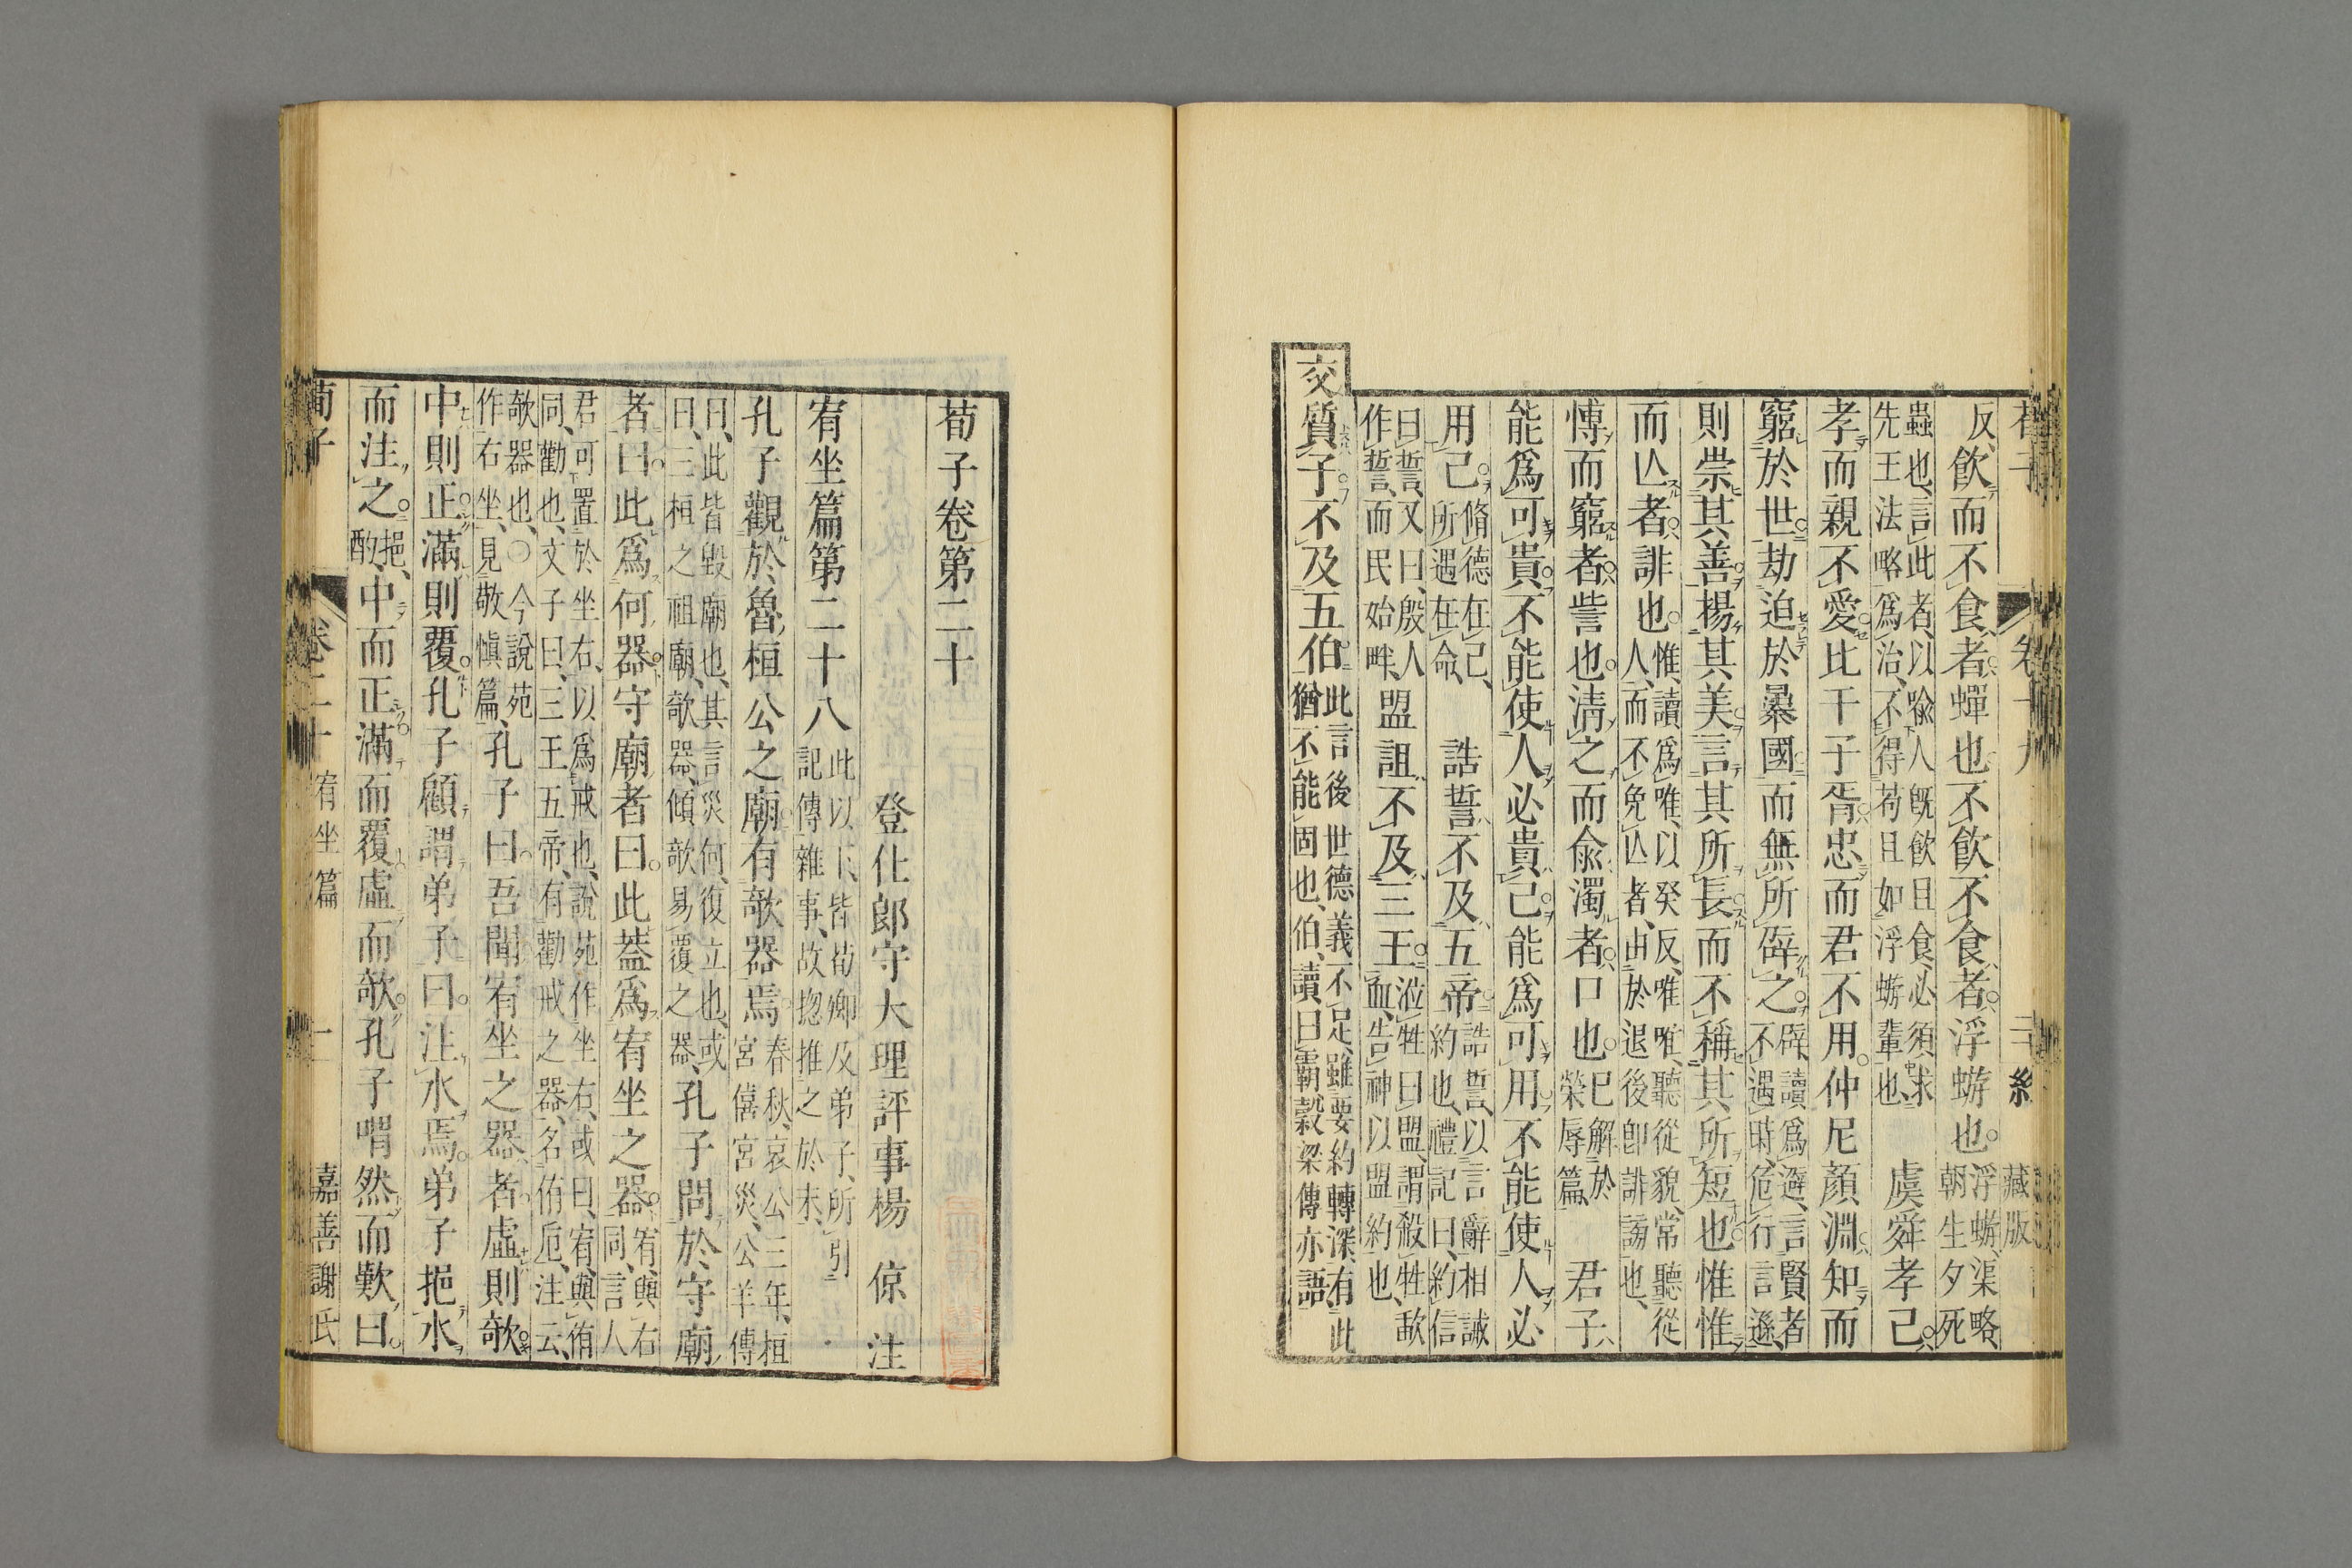 荀子 卷十九 三 絲 藏版
反、飲而不食者蟬也不飲不食者浮蝣也。浮蝣、渠略、朝生夕死
蟲也、言此者、以喩人既飲且食、必須求先王法略爲治、不得苟且如浮蝣輩也、 虞舜孝己
孝而親不愛比干子胥忠而君不用仲尼顏淵知而
窮於世劫迫於暴國而無所辟之。辟、讀爲避、言賢者不遇時、危行言遜、
則崇其善揚其美言其所長而不稱其所短也惟惟
而亾者誹也。惟、讀爲唯、以癸反、唯唯、聽從貌、常聽從人、而不免亾者、由於退後卽誹謗也、
愽而窮者訾也。淸之而兪濁者口也。已解於榮辱篇、 君子
能爲可貴不能使人必貴己能爲可用不能使人必
用己。脩德在己、所遇在命、 誥誓不及五帝誥誓、以言辭相誡約也、禮記曰、約信
曰誓、又曰、殷人作誓、而民始畔、盟詛不及三王。涖牲曰盟、謂殺牲歃血、告神以盟約也、
交質子不及五伯此言後世德義不足、雖要約轉深、有此猶不能固也、伯、讀曰霸、穀梁傳亦語
荀子卷第二十
登仕郎守大理評事楊 倞 注
宥坐篇第二十八此以下、皆荀卿及弟子、所引記傳雜事、故揔推之於末、
孔子觀於魯桓公之廟有欹器焉。春秋、哀公三年、桓宮僖宮災、公羊傳
曰、此皆毀廟也、其言災何、復立也、或曰、三桓之祖廟、欹器、傾欹易覆之器、孔子問於守廟
者曰此爲何器守廟者曰此葢爲宥坐之器宥、與右同、言人
君可置於坐右、以爲戒也、說苑作坐右、或曰、宥、與侑同、勸也、文子曰、三王五帝、有勸戒之器、名侑巵、注云、
欹器也、〇今說苑作右坐、見敬愼篇、孔子曰吾聞宥坐之器者虛則欹
中則正滿則覆孔子顧謂弟子曰注水焉。弟子挹水
而注之。挹、酌、中而正滿而覆虛而欹。孔子喟然而歎曰。
荀子 卷二十 宥坐篇 一 嘉善謝氏